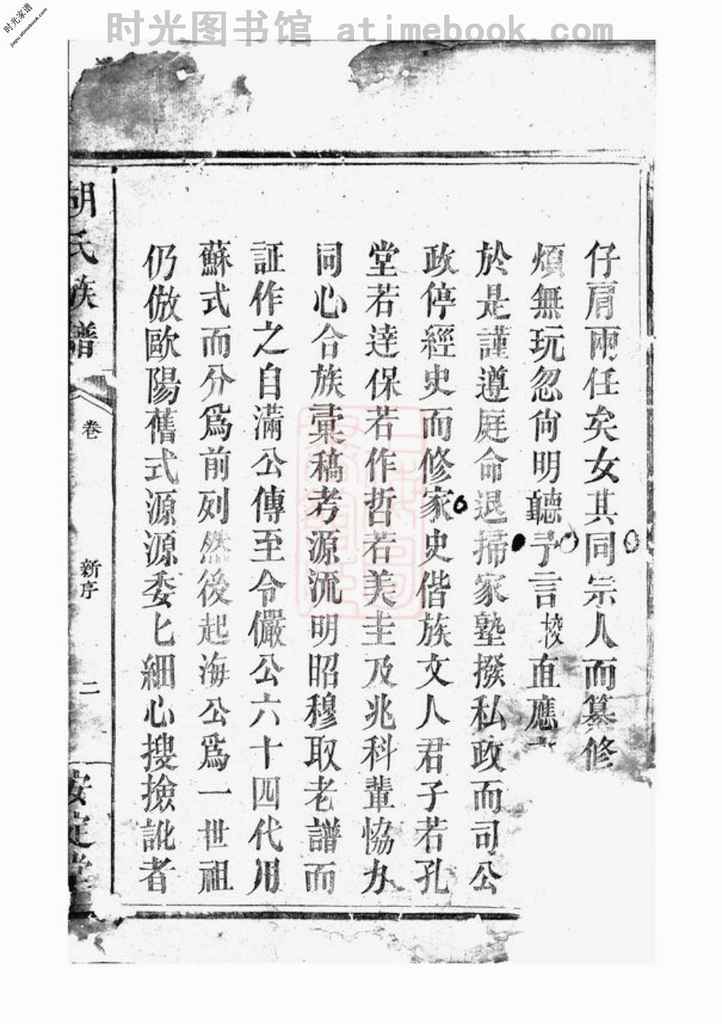 时光图书馆 — atimebook.com
时光家谱
jiapu.atimebook.com
仔肩兩任矣女其同宗人而纂修
煩無玩忽尙明聽予言棱直應
於是謹遵庭命退掃家塾撥私政而司公
政停經史而修家史偕族文人君子若孔
堂若達保若作哲若美圭及兆科輩恊办
同心合族彙稿考源流明昭穆取老譜而
証作之自滿公傳至令儼公六十四代用
蘇式而分爲前列然後起海公爲一世祖
仍倣歐陽舊式源源委匕細心搜撿訛者
胡氏族譜
卷
新序
二
安定堂